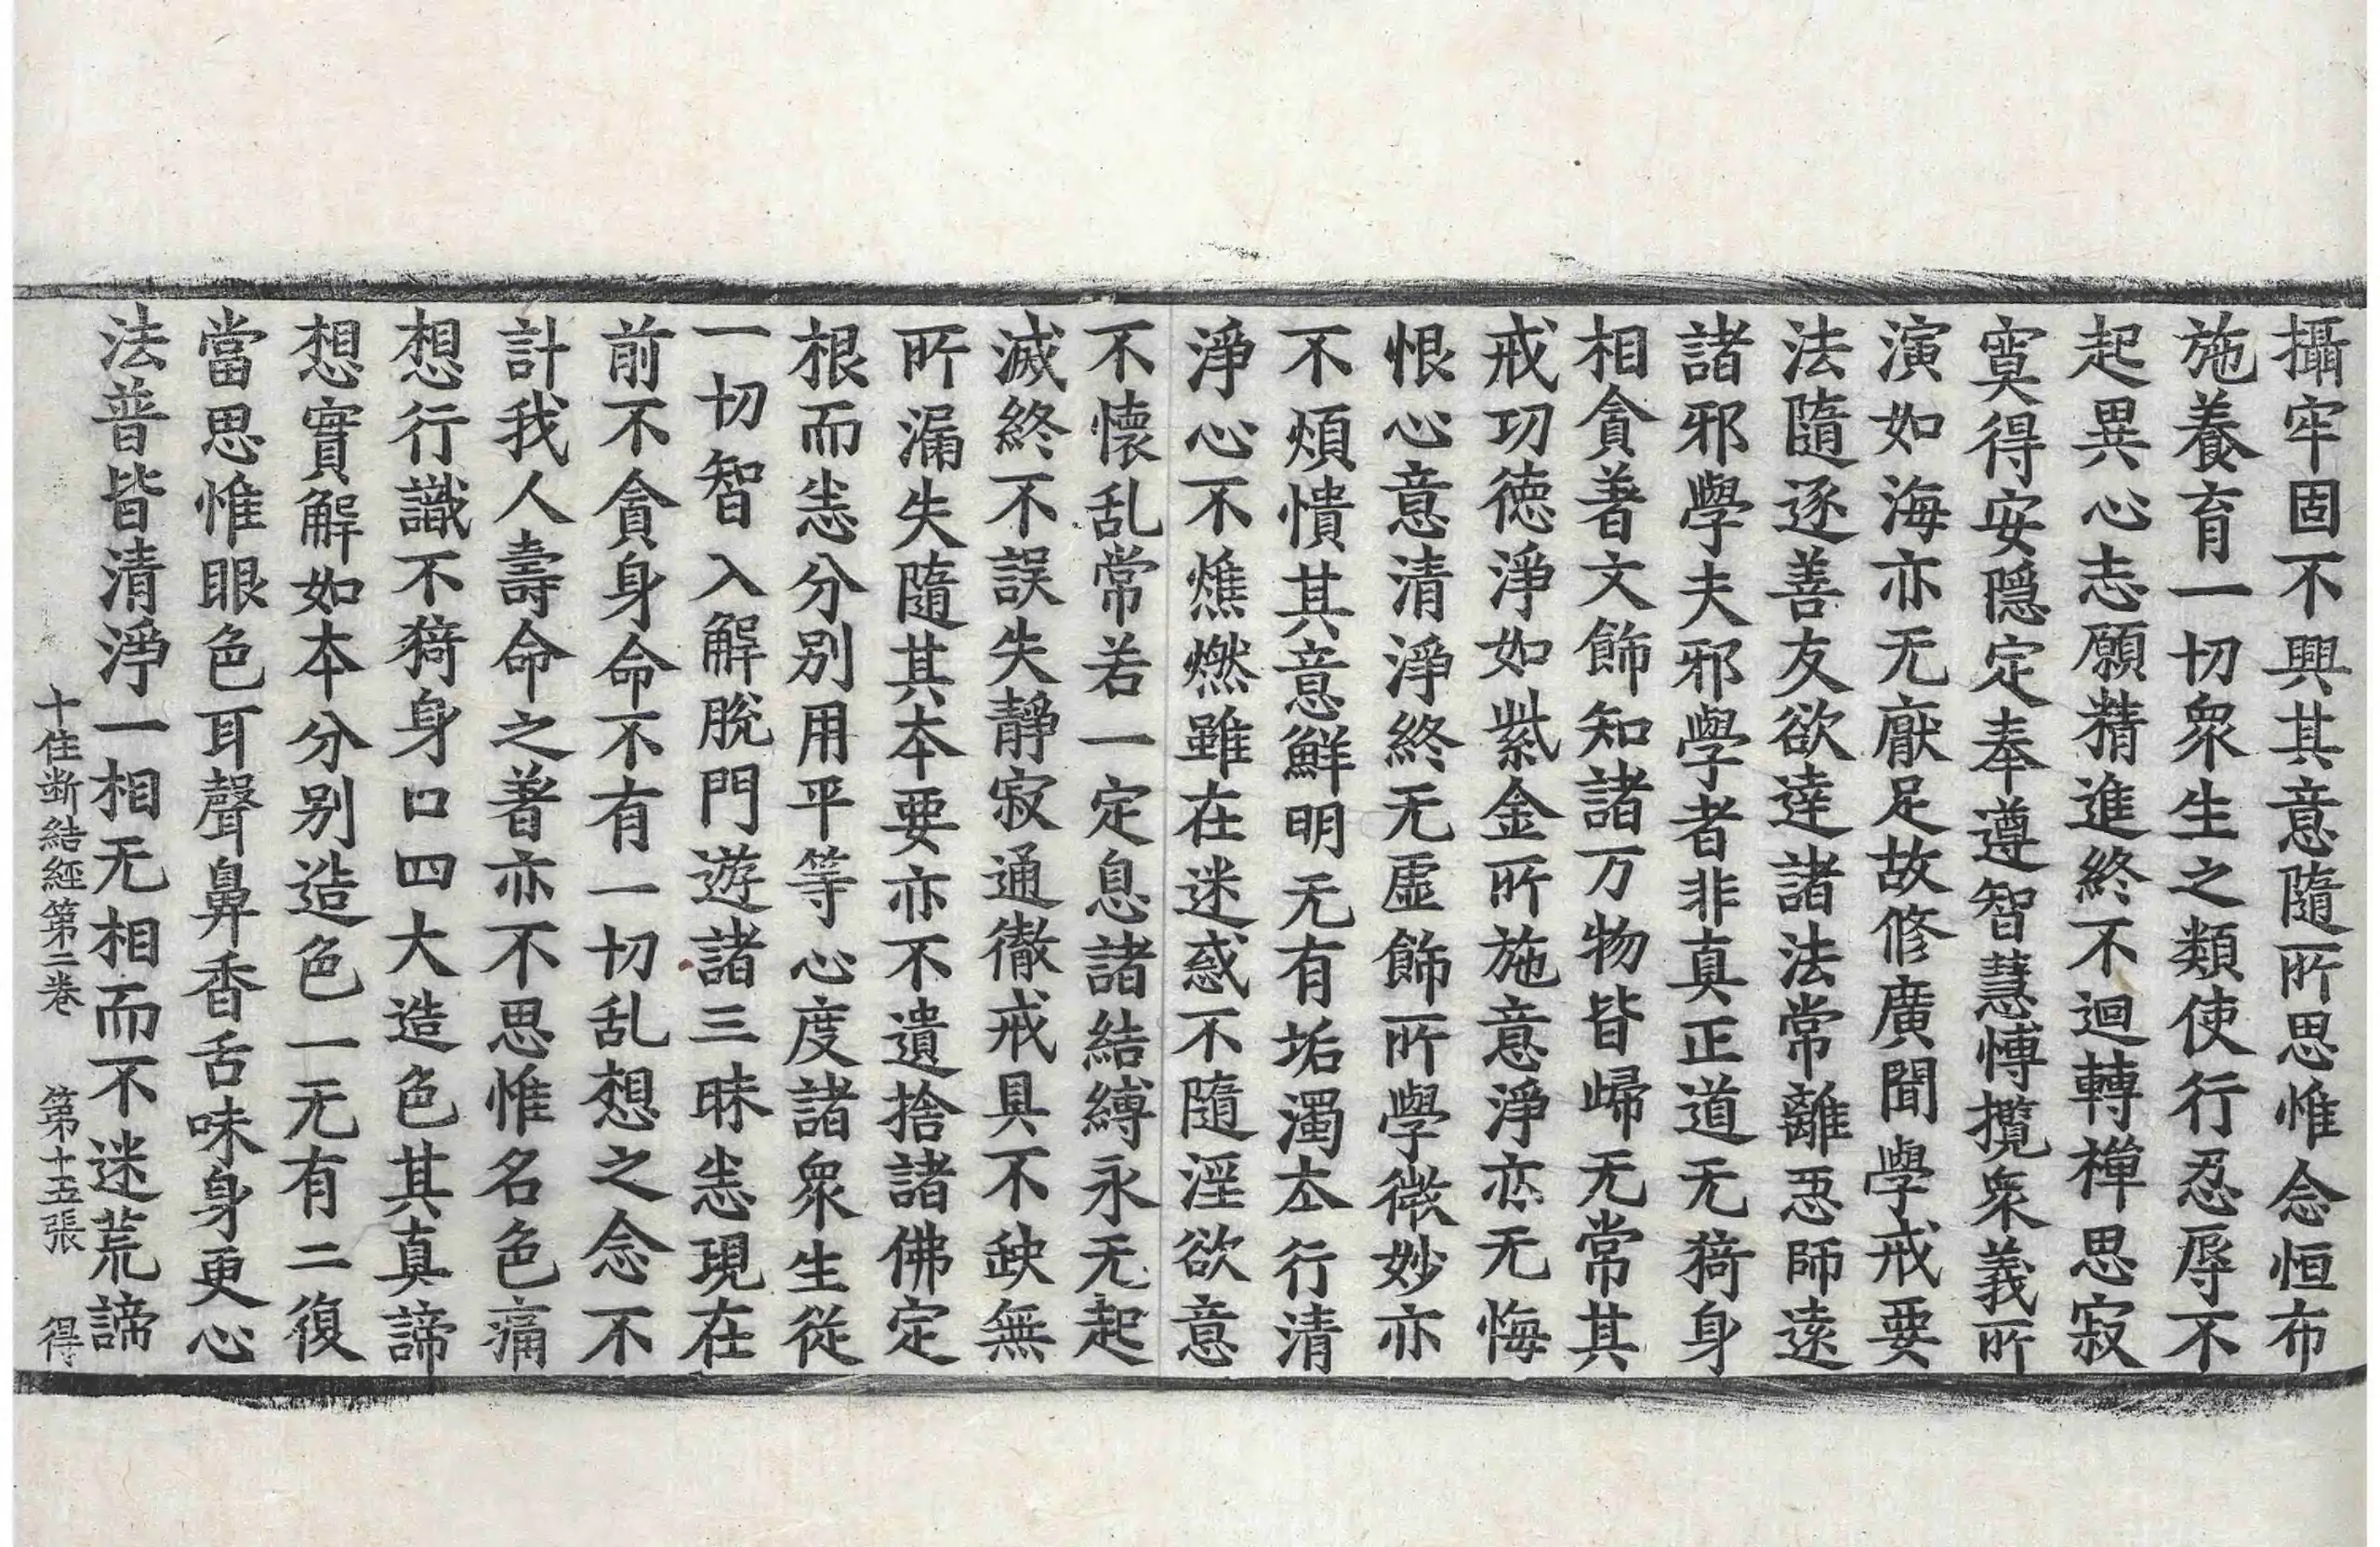 攝牢固不興其意隨所思惟念恒布
施養育一切衆生之類使行忍辱不
起異心志願精進終不迴轉禪思寂
寞得安隱定奉遵智慧博攬衆義所
演如海亦无厭足故修廣聞學戒要
法隨逐善友欲達諸法常離惡師遠
諸邪學夫邪學者非真正道无猗身
相貪著文飾知諸万物皆歸无常其
戒功德淨如紫金所施意淨亦无悔
恨心意清淨終无虛飾所學微妙亦
不煩憒其意鮮明无有垢濁夲行清
淨心不燋燃雖在迷惑不隨淫欲意
不懷乱常若一定息諸結縛永无起
滅終不誤失靜寂通徹戒具不缺無
所漏失隨其夲要亦不遺捨諸佛定
根而恚分別用平等心度諸衆生從
一切智入解脫門遊諸三昧恚現在
前不貪身命不有一切乱想之念不
計我人壽命之著亦不思惟名色痛
想行識不猗身口四大造色其真諦
想實解如本分別造色一无有二復
當思惟眼色耳聲鼻香舌味身更心
法普皆清淨一相无相而不迷荒諦
十住斷結經第二卷 第十五張 得